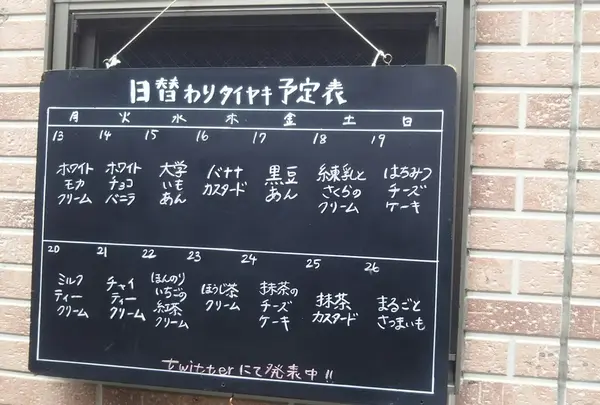 日替わりタイヤキ予定表
月 火 水 木 金 土 日
13 14 15 16 17 18 19
ホワイト ホワイト 大学 バナナ 黒豆 練乳と はちみつ
モカ チョコ いも カスタード あん さくらの チーズ
クリーム バニラ あん クリーム ケーキ
20 21 22 23 24 25 26
ミルク チャイ ほんのり ほうじ茶 抹茶の 抹茶 まるごと
ティー ティー いちごの クリーム チーズ カスタード さつまいも
クリーム クリーム 紅茶 ケーキ
クリーム
twitterにて発表中!!